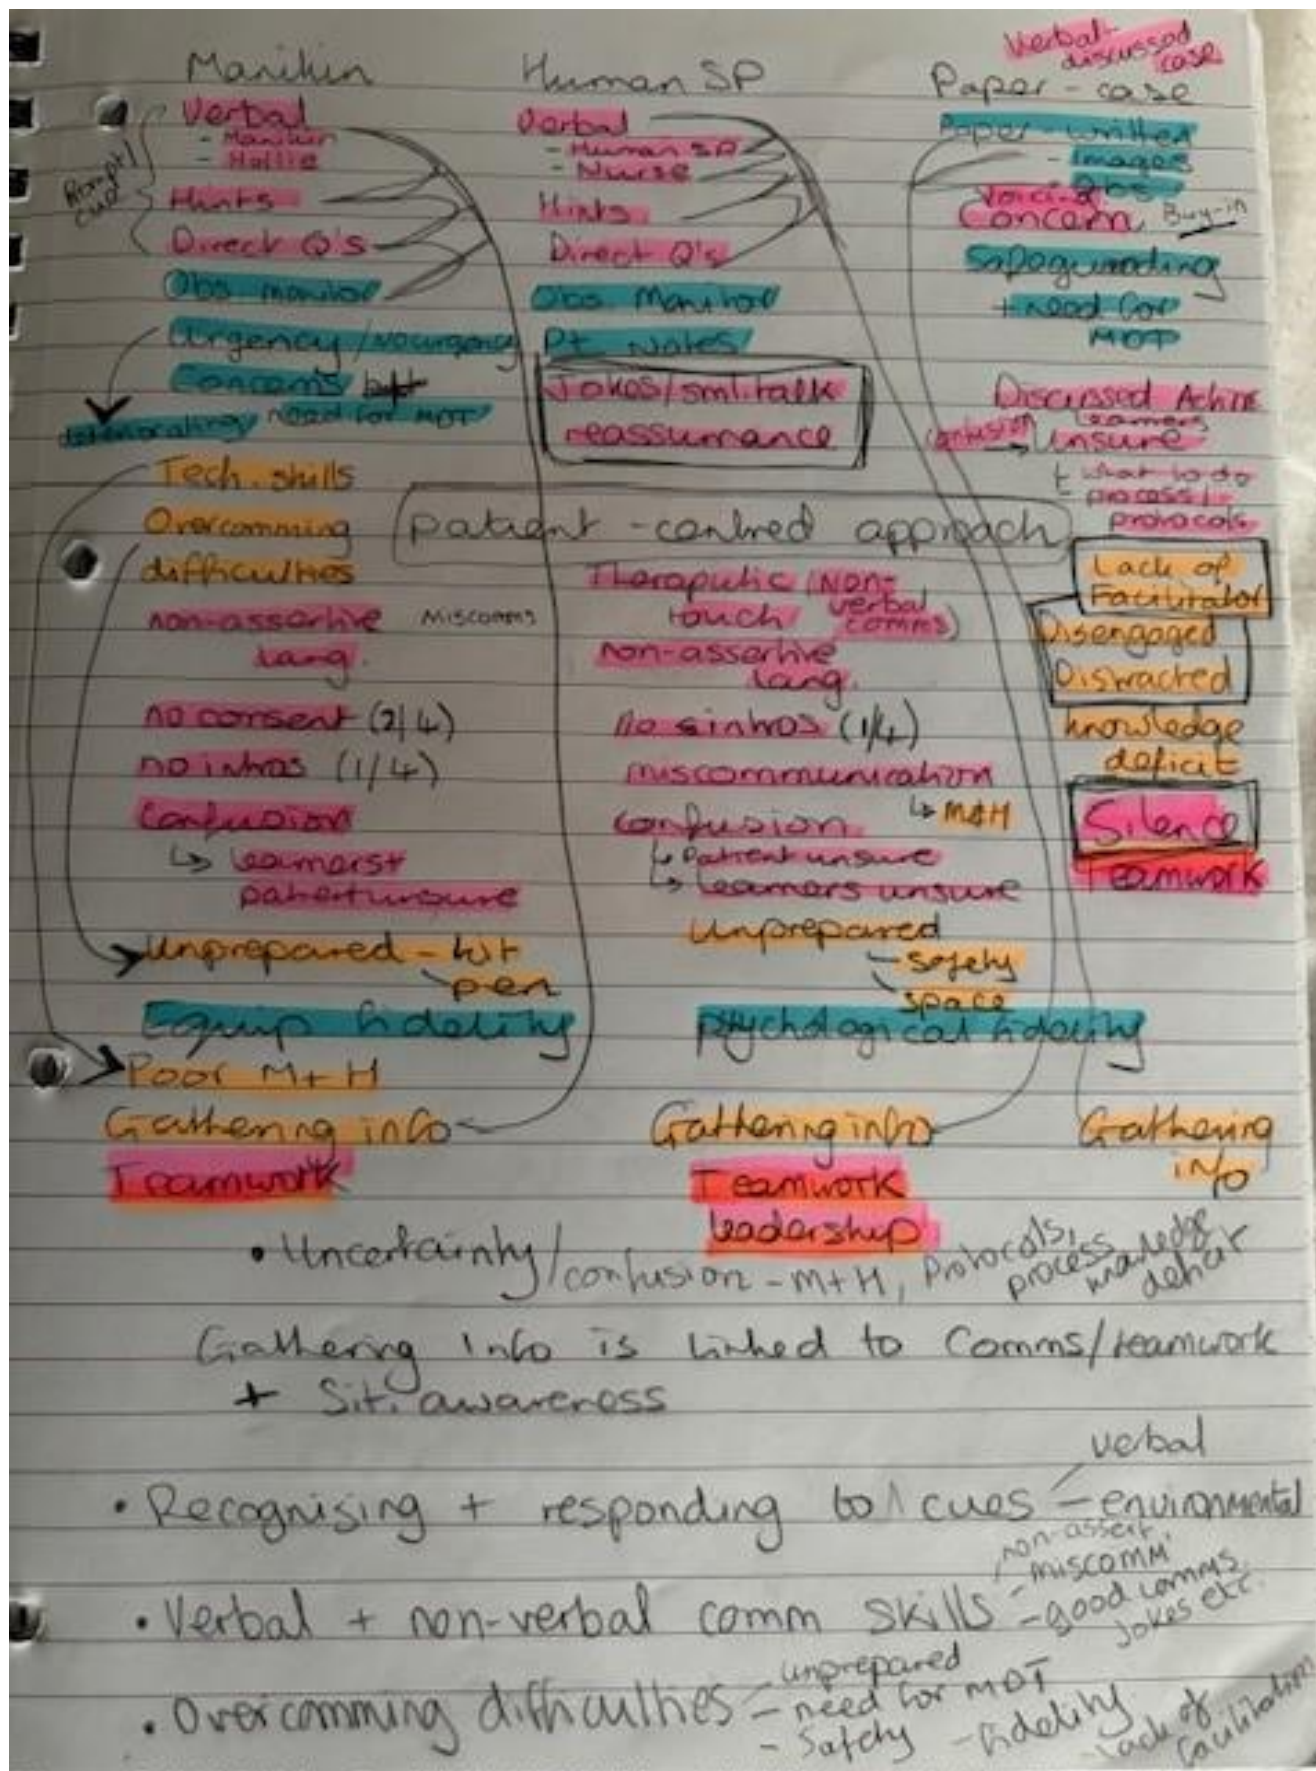 Manikin
Verbal
- Manikin
- Hollie
Prompt/
cue
Hints
Direct Q's
Obs monitor
Urgency/no urgency
Concerns
deteriorating need for MDT
Tech. skills
Overcomming
difficulties
non-assertive
lang.
Miscomms
no consent (2/4)
no intros (1/4)
Confusion
↳ learners+
patient unsure
Unprepared - kit
pen
Equip fidelity
Poor M+H
Gathering info
Teamwork
Human SP
Verbal
- Human SP
- Nurse
Hints
Direct Q's
Obs Monitor
Pt Notes
Jokes/sml.talk
reassurance
patient-centred approach
Theraputic (Non-
touch verbal
comms)
non-assertive
lang.
no intros (1/4)
miscommunication
↳ M&H
Confusion
↳ Patient unsure
↳ learners unsure
Unprepared
- safety
space
psychological fidelity
Gathering info
Teamwork
leadership
Verbal-
discussed
case
Paper - case
Paper - written
- Images
- Obs
Concern Buy-in
Safeguarding
+ need for
MDT
Discussed
learners
confusion → Unsure
what to do
process/
protocols
Lack of
Facilitator
Disengaged
Distracted
knowledge
deficit
Silence
Teamwork
Gathering
info
• Uncertainty/confusion - M+H, Protocols,
process knowledge
deficit
Gathering info is linked to Comms/teamwork
+ Sit. awareness
verbal
• Recognising + responding to cues - environmental
non-assert,
- miscomm
• Verbal + non-verbal comm skills - good comms,
jokes etc.
unprepared
• Overcomming difficulties - need for MDT
- Safety - fidelity - lack of
facilitation